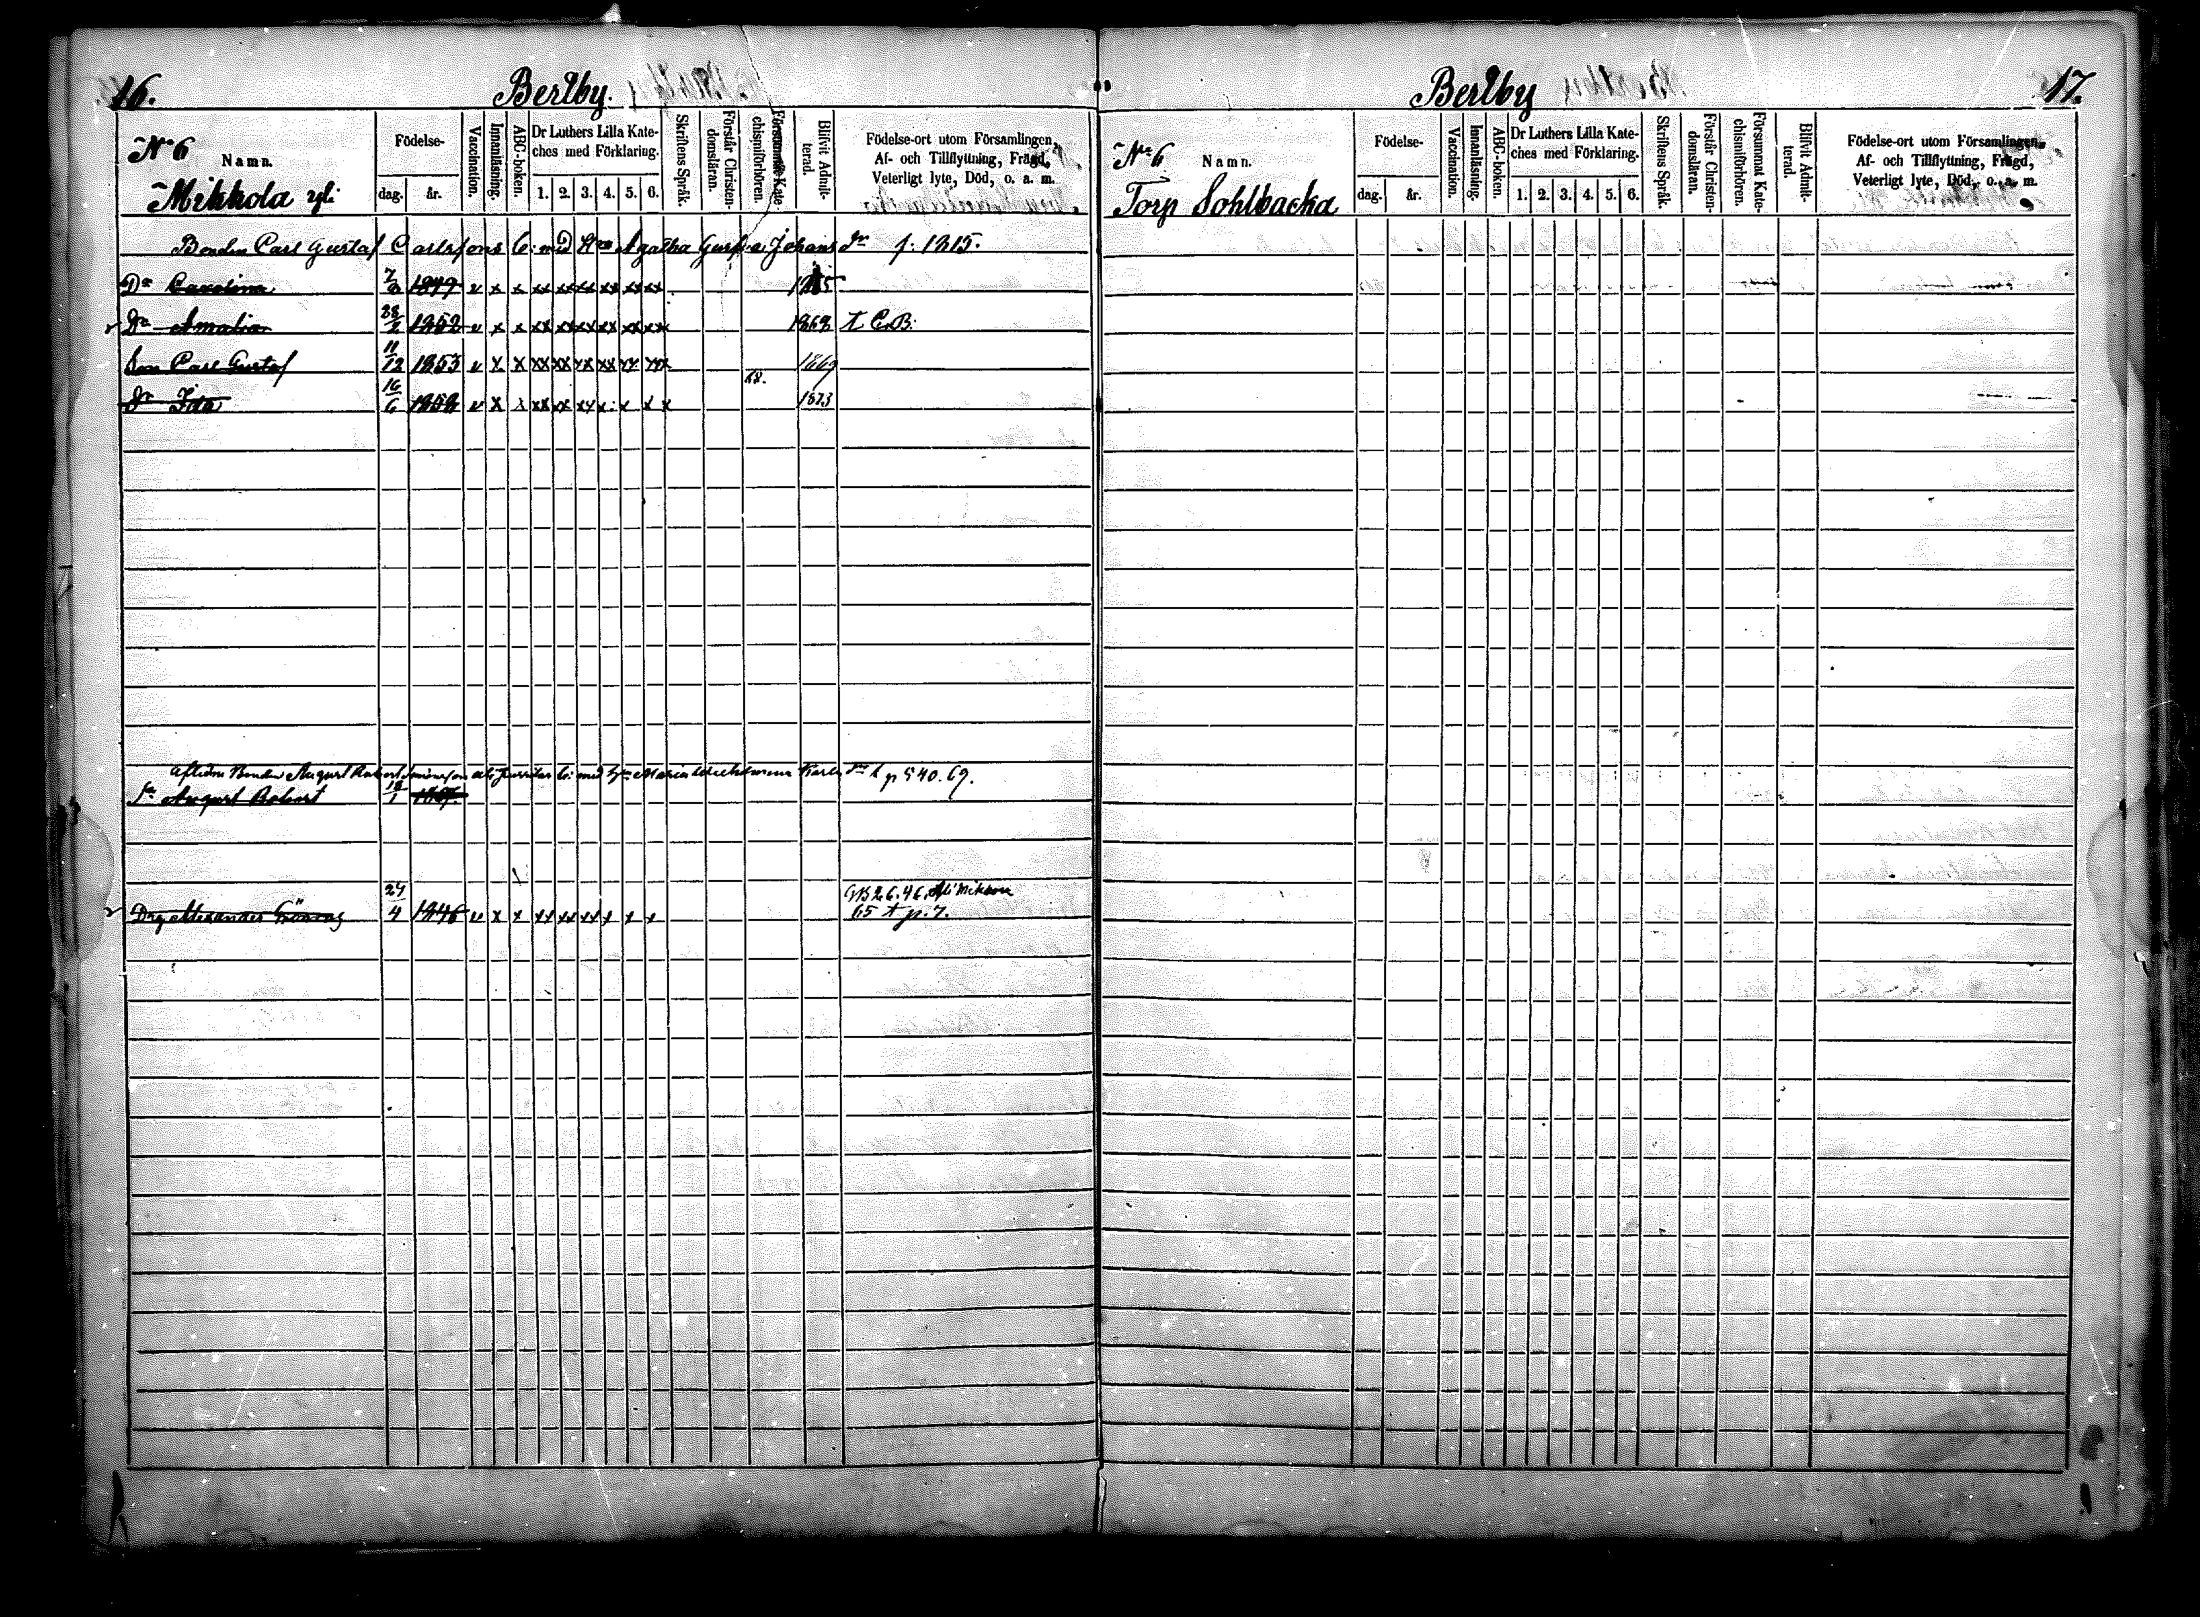 16. Bertby.
No 6
Namn.
Mikkola
Födelse-
dag. år.
Vaccination.
Innanläsning.
ABC-boken.
Dr Luthers Lilla Kate-
ches med Förklaring.
1. 2. 3. 4. 5. 6.
Skriftens Språk.
Förstår Christen-
domsläran.
Försummat Kate-
chismiförhören.
Blifvit Admit-
terad.
Födelse-ort utom Församlingen,
Af- och Tillflyttning, Frägd,
Veterligt lyte, Död, o. a. m.
Bonden Carl Gustaf Carlssons b. med H:u Agatha Johans dr f. 1815.
Dr Carolina 7/8 1849 v x x xx xx xx xx xx xx
Dr Amalia 28/2 1852 v x x xx xx xx xx xx xxx 1868 t C.B.
Son Carl Gustaf 11/12 1853 v x x xx xx xx xx xx xxx 1869
68.
Dr Ida 16/6 v x x xx xx xx x x x x 1873
Aflidne Bonden August b. med Maria p 540. 69.
Sn August Robert
Dng Alexander 24/4 1846 v x x xx xx xx x x x 65 t p. 7.
Bertby 17.
No 6
Namn.
Torp Sohlbacka
Födelse-
dag. år.
Vaccination.
Innanläsning.
ABC-boken.
Dr Luthers Lilla Kate-
ches med Förklaring.
1. 2. 3. 4. 5. 6.
Skriftens Språk.
Förstår Christen-
domsläran.
Försummat Kate-
chismiförhören.
Blifvit Admit-
terad.
Födelse-ort utom Församlingen,
Af- och Tillflyttning, Frägd,
Veterligt lyte, Död, o. a. m.